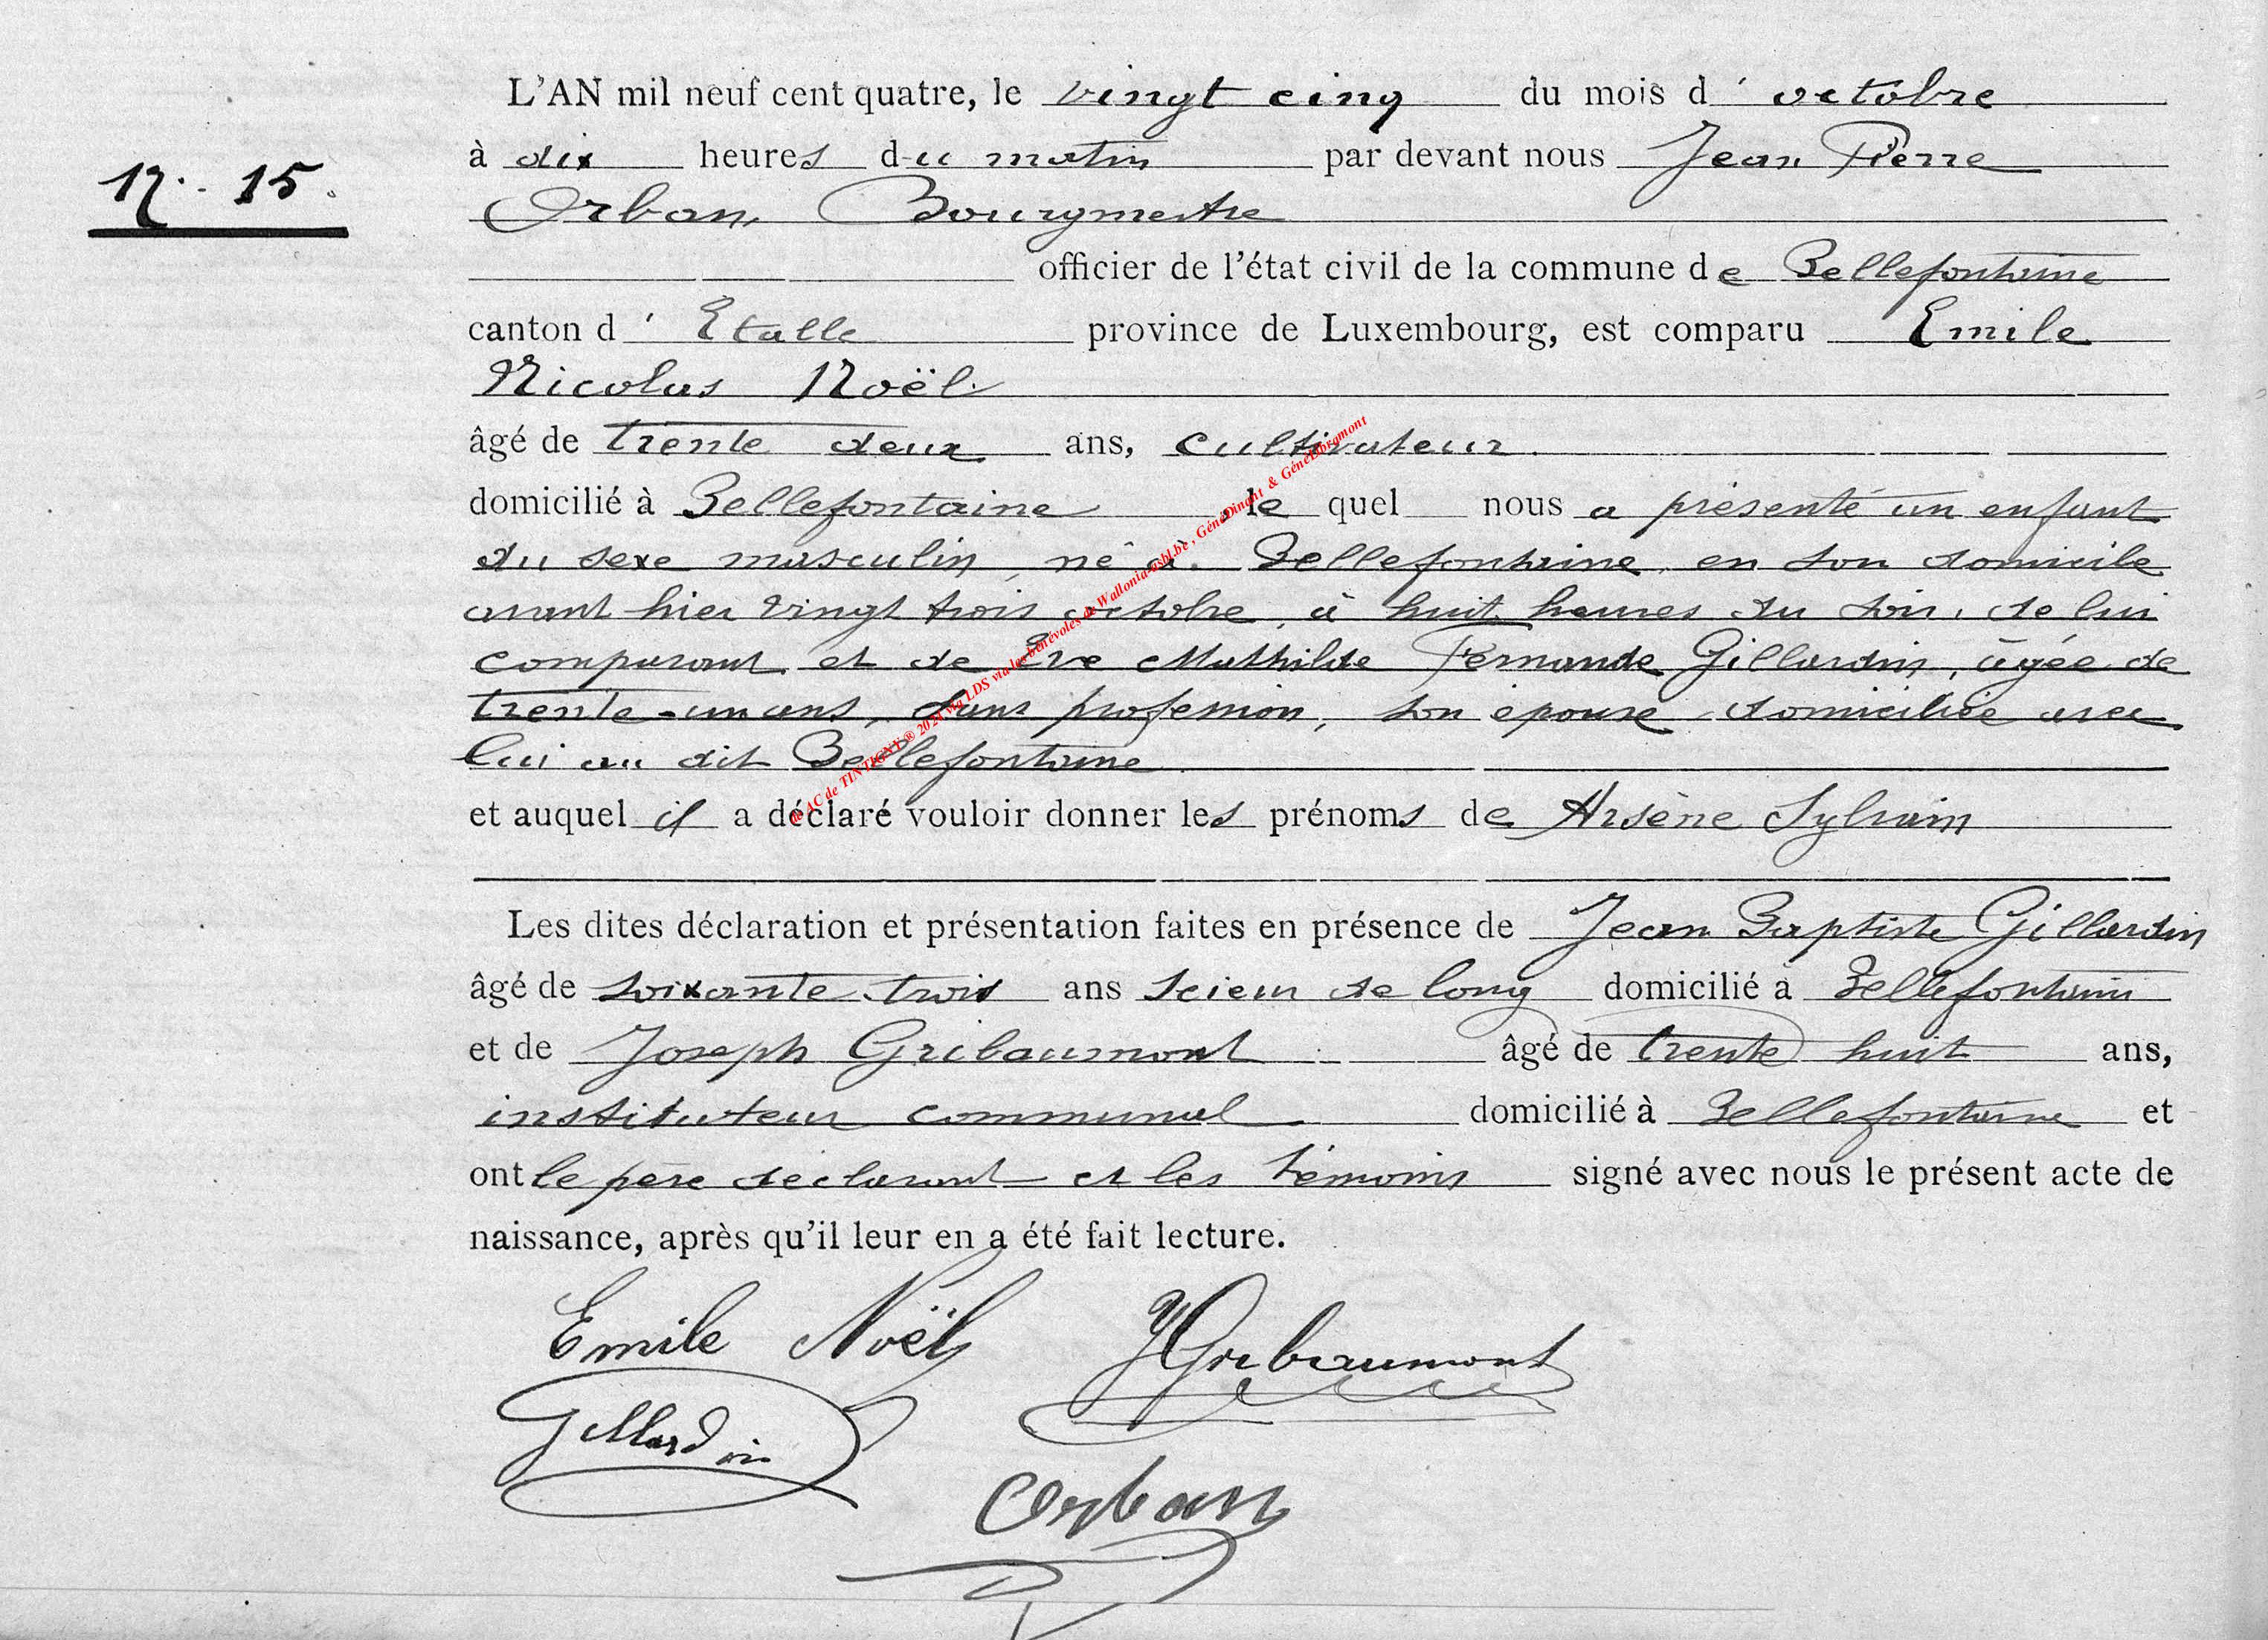 L'AN mil neuf cent quatre, le vingt cinq du mois d'octobre
à dix heures du matin par devant nous Jean Pierre
N. 15.
Orban, Bourgmestre
officier de l'état civil de la commune de Bellefontaine
canton d'Etalle province de Luxembourg, est comparu Emile
Nicolas Noël.
âgé de trente deux ans, cultivateur
domicilié à Bellefontaine le quel nous a présenté un enfant
du sexe masculin, né à Bellefontaine en son domicile
avant hier vingt trois octobre, à huit heures du soir, de lui
comparant et de Eve Mathilde Fernande Gillardin, âgée de
trente-un ans, sans profession, son épouse domiciliée avec
lui au dit Bellefontaine
et auquel il a déclaré vouloir donner les prénoms de Arsène Sylvain
Les dites déclaration et présentation faites en présence de Jean Baptiste Gillardin
âgé de soixante trois ans scieur de long domicilié à Bellefontaine
et de Joseph Gribaumont âgé de trente huit ans,
instituteur communal domicilié à Bellefontaine et
ont le père déclarant et les témoins signé avec nous le présent acte de
naissance, après qu'il leur en a été fait lecture.
Emile Noël JGribaumont
Gillardin
Orban
AC de TINTIGNY ® 2024 via LDS via les bénévoles de Wallonia-asbl.be, GénéDinant & GénéLibramont